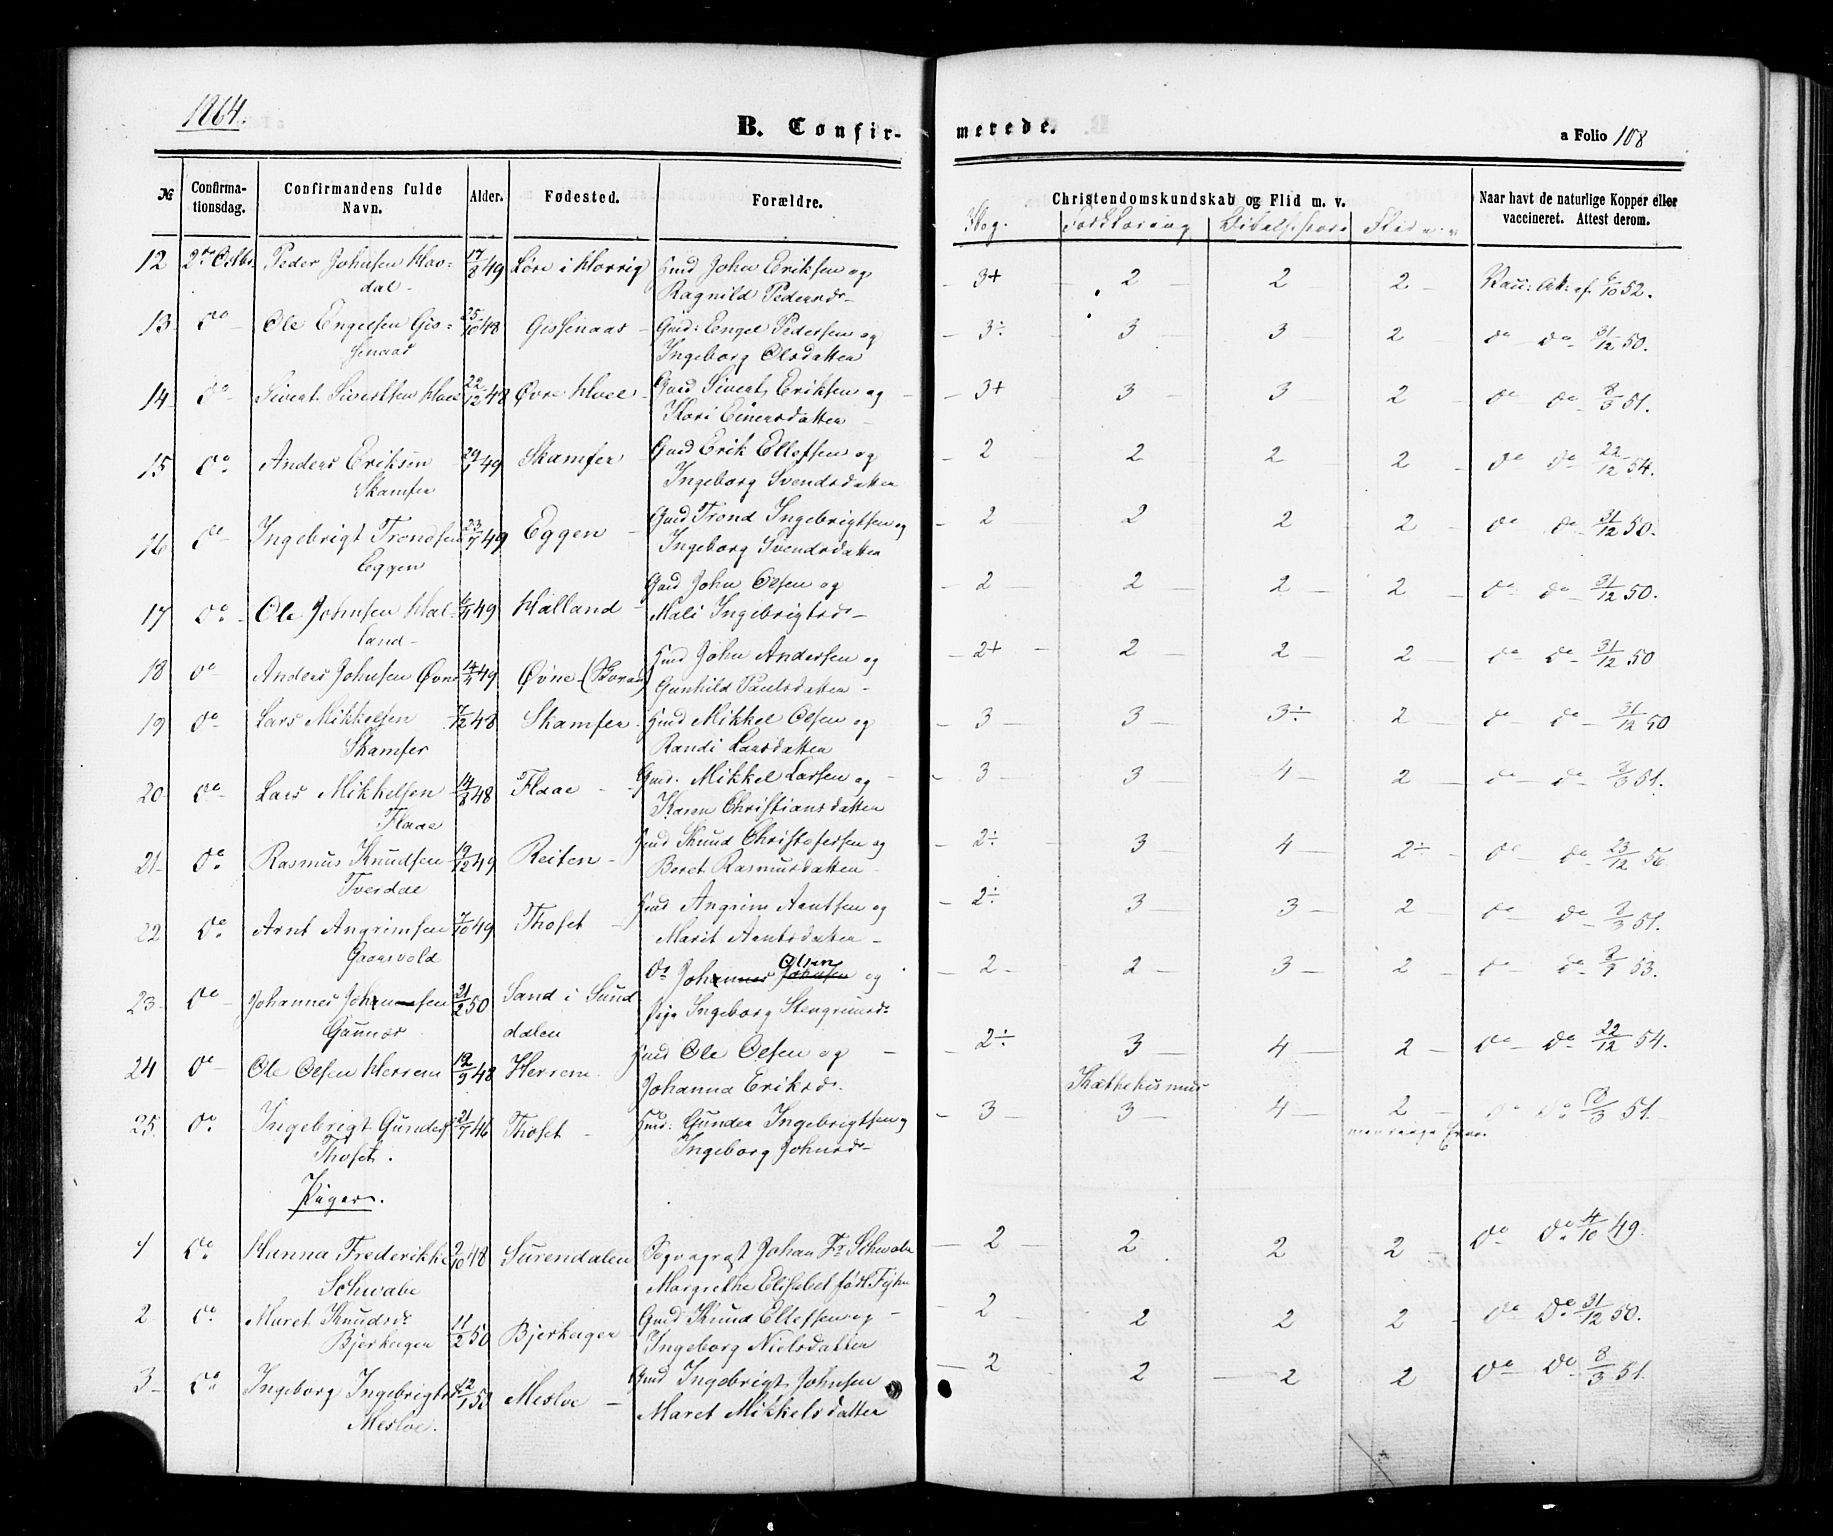 1864.
B. Confir-
№ Confirma-tionsdag. Confirmandens fulde Navn. Alder. Fødested. Forældre.
12 2den Octbr. Peder Johnsen Hov- 17/8 49 Løse i Horrig Huusmd John Eriksen og
dal- Ragnild Pedersdr-
13 do - Ole Engelsen Gis- 25/10 48 Gissenaas Gmd: Engel Pedersen og
senaas Ingeborg Olsdatter
14 do Sivert Sivertsen Hoel 22/12 48 Øvre Hoel - Gmd Sivert Eriksen og -
Kari Einersdatter -
15 do. Anders Eriksen 29/1 49 Skamfer Gmd Erik Ellefsen og
Skamfer Ingeborg Svendsdatter
16 do - Ingebrigt Trondsen 23/7 49 Eggen - Gmd Trond Ingebrigtsen og
Eggen Ingeborg Svendsdatter
17 do. Ole Johnsen Hal- 49 Halland - Gmd John Olsen og
land- Mali Ingebrigtsdr-
18 do Anders Johnsen Øvne 14/4 49 Øvne Hmd John Andersen og
Gunhild Paulsdatter -
19 do Lars Mikkelsen 7/12 48 Skamfer Hmd Mikkel Olsen og
Skamfer Randi Larsdatter
20 do Lars Mikkelsen 14/8 48 Flaae - Gmd. Mikkel Larsen og -
Flaae Karen Christiansdatter
21 do. Rasmus Knudsen 19/12 49 Reiten - Hmd Knud Christofersen og
Tverdae Beret Rasmusdatter -
22 do. Arnt Angrimsen 7/10 49 Thoset - Hmd Angrim Arntsen og
Gaasvold Marit Arntsdatter -
23 do - Johannes Johnsen 21/2 50 Sand i Sund do John Olsen og
Gunnes dalen Pige Ingeborg Stengrimsdr
24 do - Ole Olsen Herrem 19/9 48 Herrem Hmd Ole Olsen og -
Johanna Eriksdr.
25 do. Ingebrigt Gunders 21/7 46 Thoset - Hmd: Gunder Ingebrigtsen og
Thoset. Ingeborg Johnsdr-
Piger.
1 do. Hanna Frederikke 9/10 48 Surendalen Sognepræst Johan Fr Schwabe
Schwabe Margrethe Elisabet født
2 do. Maret Knudsdr 11/2 50 Bjerkager Gmd Knud Ellefsen og -
Bjerkager Ingeborg Nielsdatter
3 do. Ingeborg Ingebrigtsdr 12/1 50 Mesloe - Gmd Ingebrigt Johnsen
Mesloe. Maret Mikkelsdatter
merede.
a Folio 108
Christendomskundskab og Flid m. v. Naar havt de naturlige Kopper eller
vaccineret. Attest derom.
Bog. Forklaring Bibelhistorie Flid
- 3+ - 2 2 - 2 - Vacc: Att: af 6/10 52.
- 3÷ 3 3 2 - do - do - 31/12 50.
- 3+ 3 3 - 2 - do do - 8/3 51.
- 2 2 2 - 2 - do do - 22/12 54.
- 2 - 2 2 - 2 - do do - 31/12 50.
- 2 - 2 - 2 - 2 - do - do - 31/12 50.
- 2+ - 2 - 2 - 2 - do do - 31/12 50
- 3 - 3 - 3÷ 2 - do - do - 31/12 50
- 3 - 3 4 - 2 - do - do - 8/3 51.
- 2÷ 3 - 4 - 2÷ - do - do - 23/12 56.
- 2÷ 3 - 3 - 2 - do - do - 8/3 51.
- 2 - 2 - 3 - 2 - do do - 8/9 53.
- 2÷ 3 - 4 - 2 - do - do - 22/12 54.
Kathekismus
- 3 - 3 - 4 - 2 - do do - 8/3 51.
- 2 - 2 2 2 - do do. 4/10 49.
- 2 - 2 2 2 - do do 31/12 50.
- 2 2 - 2 2 - do - do - 8/3 51.